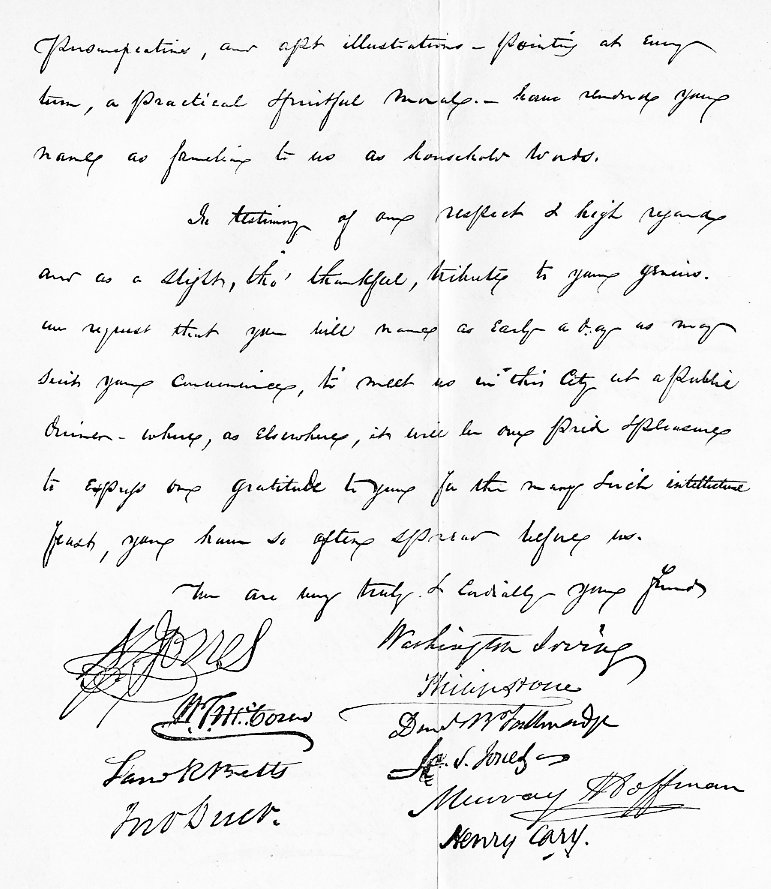 and apt illustrations – pointing at every
turn, a practical & fruitful moral – have rendered your
name as familiar to us as household words.
In testimony of our respect & high regard
and as a slight, tho' thankful, tribute to your genius.
we request that you will name as early a day as may
suit your convenience, to meet us in this City at a public
dinner – where, as elsewhere, it will be our pride & pleasure
to express our gratitude to you for the many rich intellectual
feasts, you have so often spread before us.
We are very truly & cordially your friends
Jones
Washington Irving
Philip Hone
W. T. McCoun
D. S. Jones
Murray Hoffman
Jno Duer.
Henry Cary.